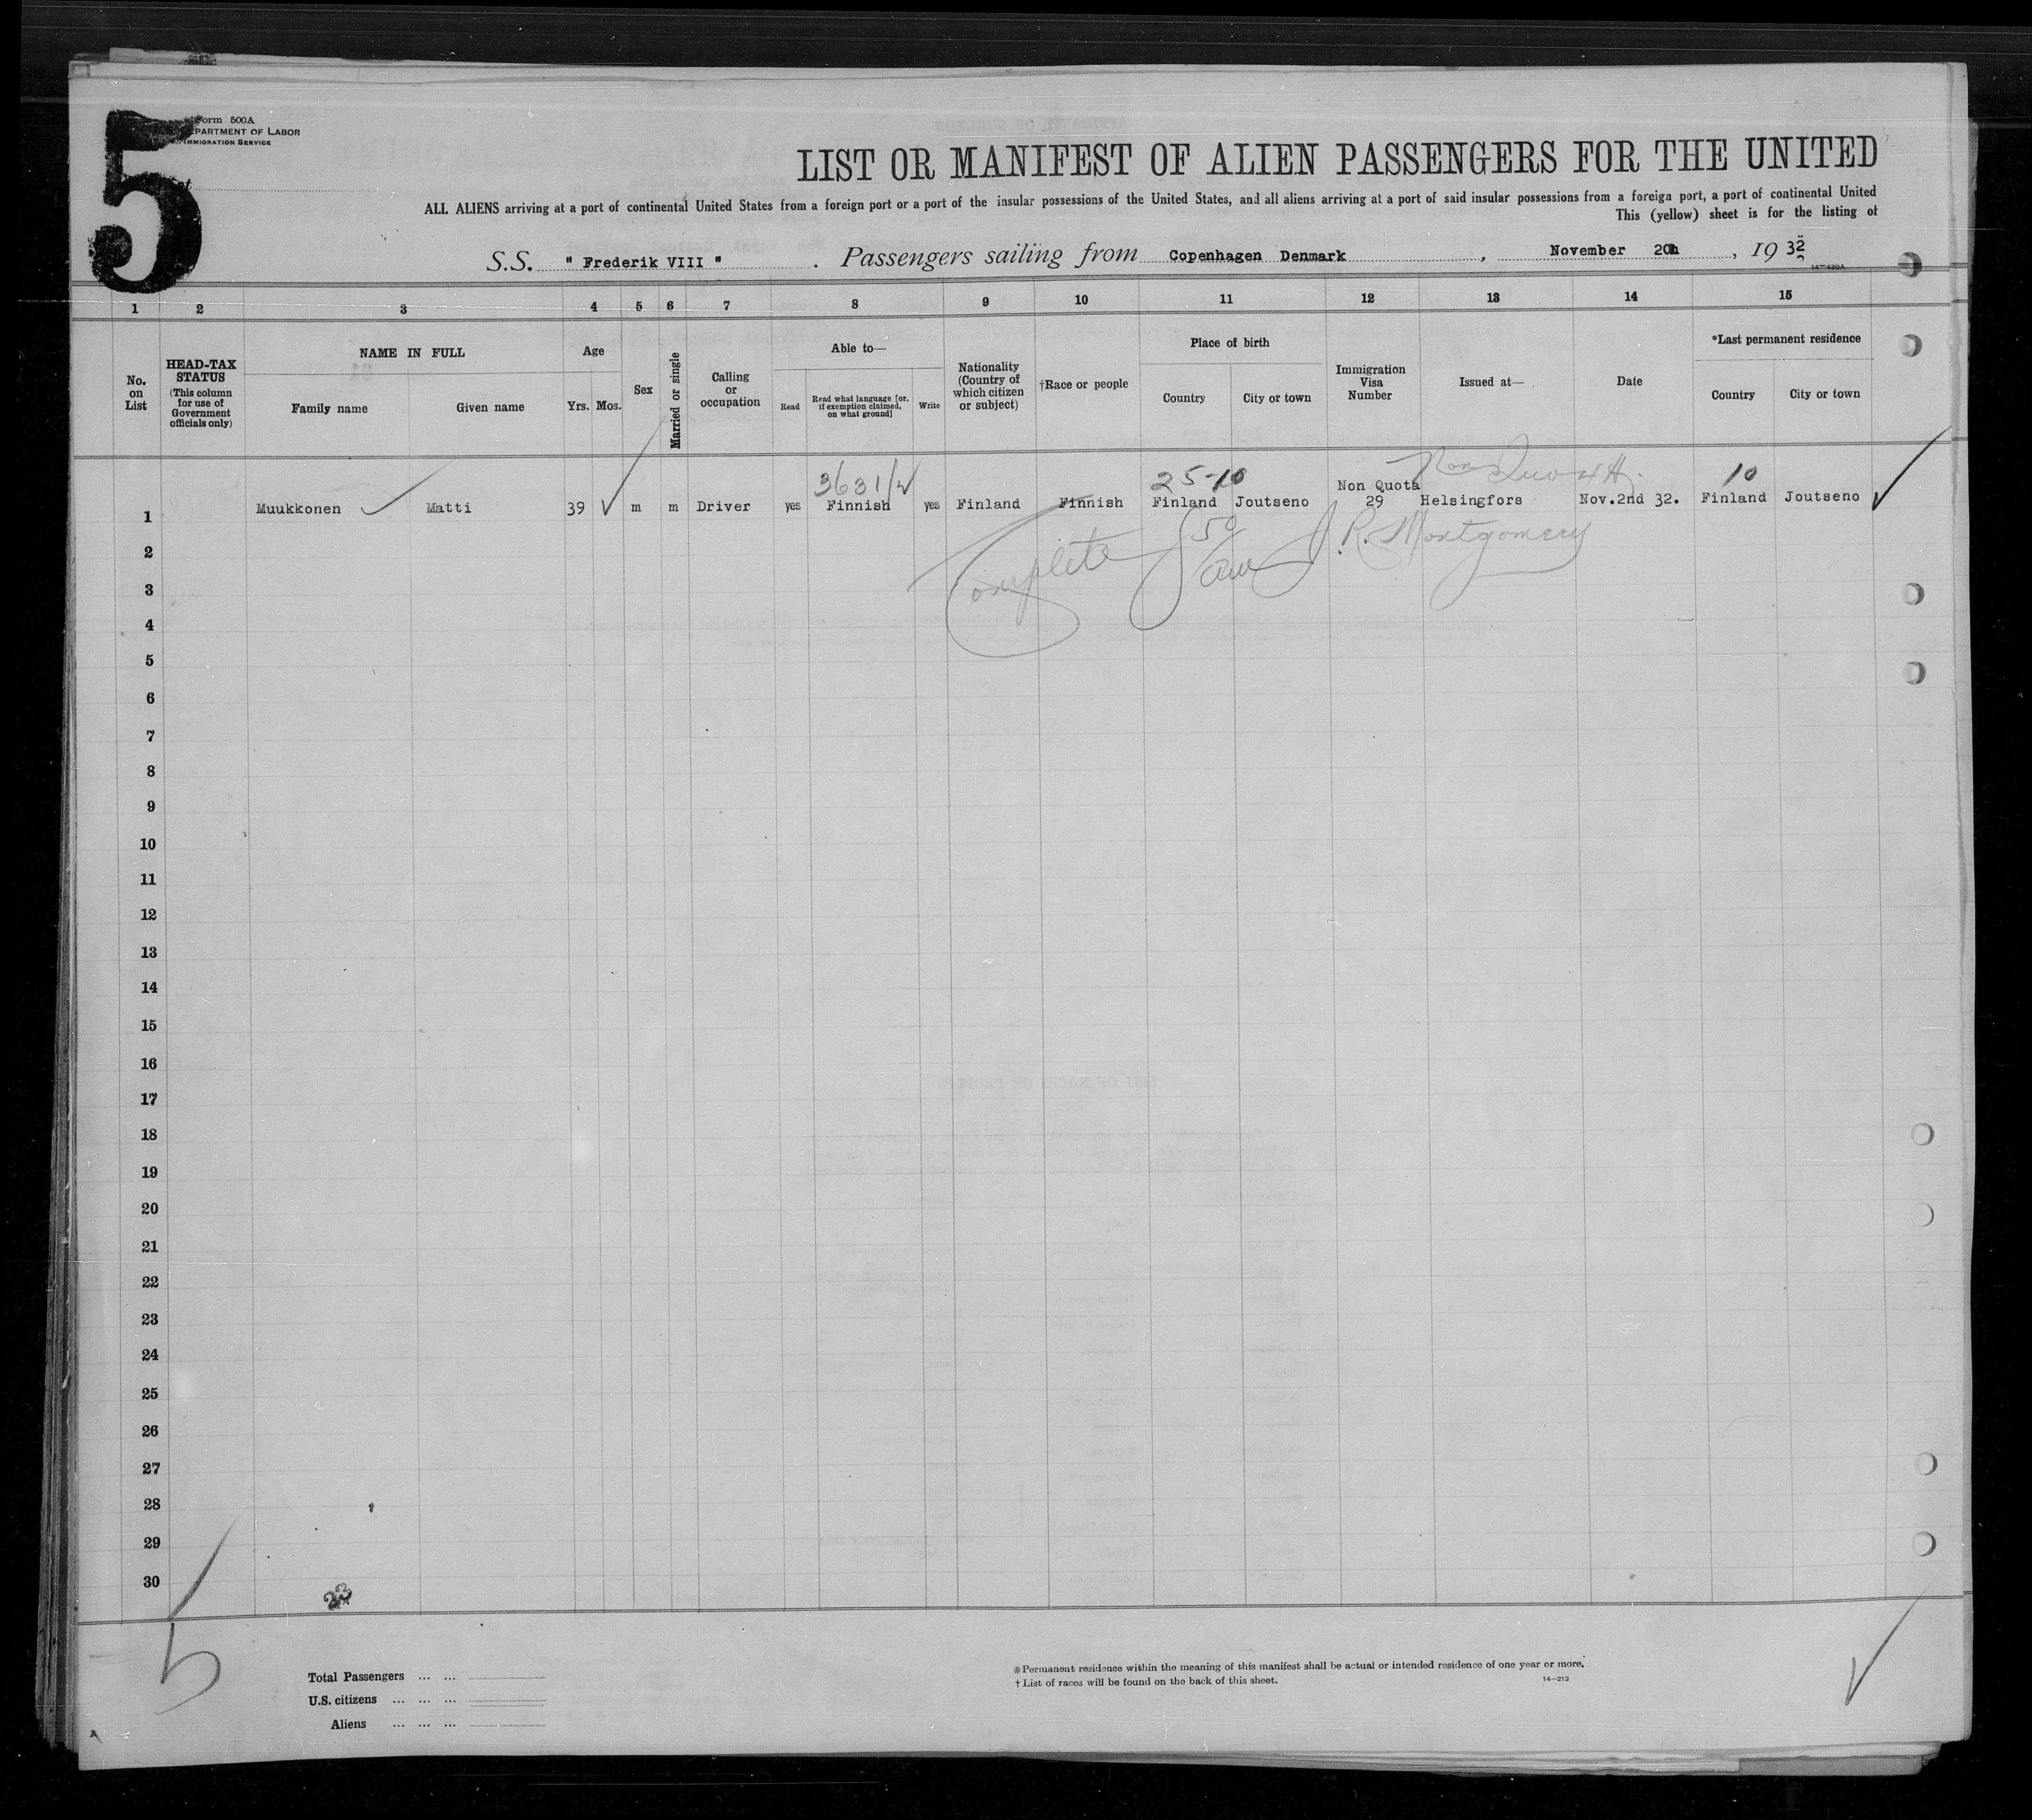 5
Form 500A
DEPARTMENT OF LABOR
IMMIGRATION SERVICE
LIST OR MANIFEST OF ALIEN PASSENGERS FOR THE UNITED
ALL ALIENS arriving at a port of continental United States from a foreign port or a port of the insular possessions of the United States, and all aliens arriving at a port of said insular possessions from a foreign port, a port of continental United
This (yellow) sheet is for the listing of
S.S. " Frederik VIII " . Passengers sailing from Copenhagen Denmark , November , 19 32
14—430A
1 2 3 4 5 6 7 8 9 10 11 12 13 14 15
No. on List
HEAD-TAX STATUS (This column for use of Government officials only)
NAME IN FULL
Family name Given name
Age
Yrs. Mos.
Sex
Married or single
Calling or occupation
Able to—
Read
Read what language [or, if exemption claimed, on what ground]
Write
Nationality (Country of which citizen or subject)
†Race or people
Place of birth
Country City or town
Immigration Visa Number
Issued at—
Date
*Last permanent residence
Country City or town
3631/ 25-10 Non 10
1 Muukkonen Matti 39 m m Driver yes Finnish yes Finland Finnish Finland Joutseno Non Quota 29 Helsingfors Nov.2nd 32. Finland Joutseno
Complete J. R. Montgomery
2
3
4
5
6
7
8
9
10
11
12
13
14
15
16
17
18
19
20
21
22
23
24
25
26
27
28
29
30
5
Total Passengers ... ...
U.S. citizens ... ... ...
Aliens ... ... ...
*Permanent residence within the meaning of this manifest shall be actual or intended residence of one year or more.
† List of races will be found on the back of this sheet.
14—213